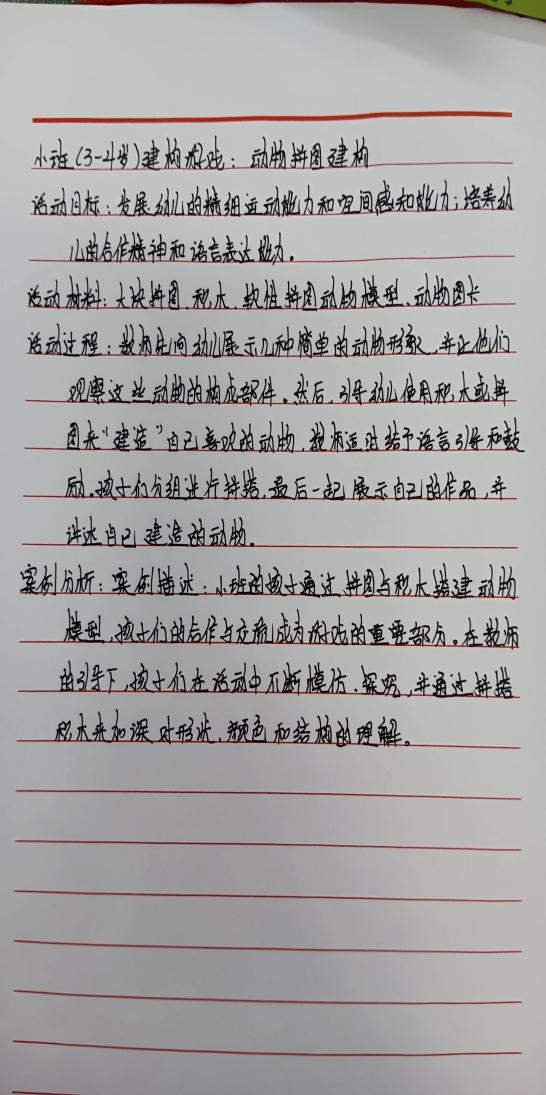 小班(3-4岁)建构游戏：动物拼图建构
活动目标：发展幼儿的精细运动能力和空间感知能力；培养幼
儿的合作精神和语言表达能力。
活动材料：大块拼图、积木、软性拼图动物模型、动物图卡
活动过程：教师先向幼儿展示几种简单的动物形象，并让他们
观察这些动物的构成部件。然后，引导幼儿使用积木或拼
图来“建造”自己喜欢的动物，教师适时给予语言引导和鼓
励。孩子们分组进行拼搭，最后一起展示自己的作品，并
讲述自己建造的动物。
案例分析：案例描述：小班的孩子通过拼图与积木搭建动物
模型，孩子们的合作与交流成为游戏的重要部分。在教师
的引导下，孩子们在活动中不断模仿、探究，并通过拼搭
积木来加深对形状、颜色和结构的理解。